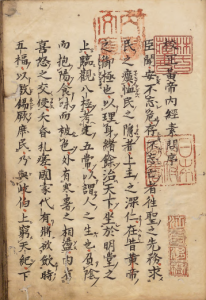 校正黃帝內經素問序
臣聞安不忘危存不忘亡者往聖之先務求
民之瘼恤民之隱者上主之深仁在昔黃帝
之御極也以理身緒餘治天下坐於明堂之
上臨觀八極考建五常以謂人之生也負陰
而抱陽食味而被色外有寒暑之相盪內有
喜怒之交侵夭昏札瘥國家代有將欲斂時
五福以敷錫厥庶民乃與岐伯上窮天紀下